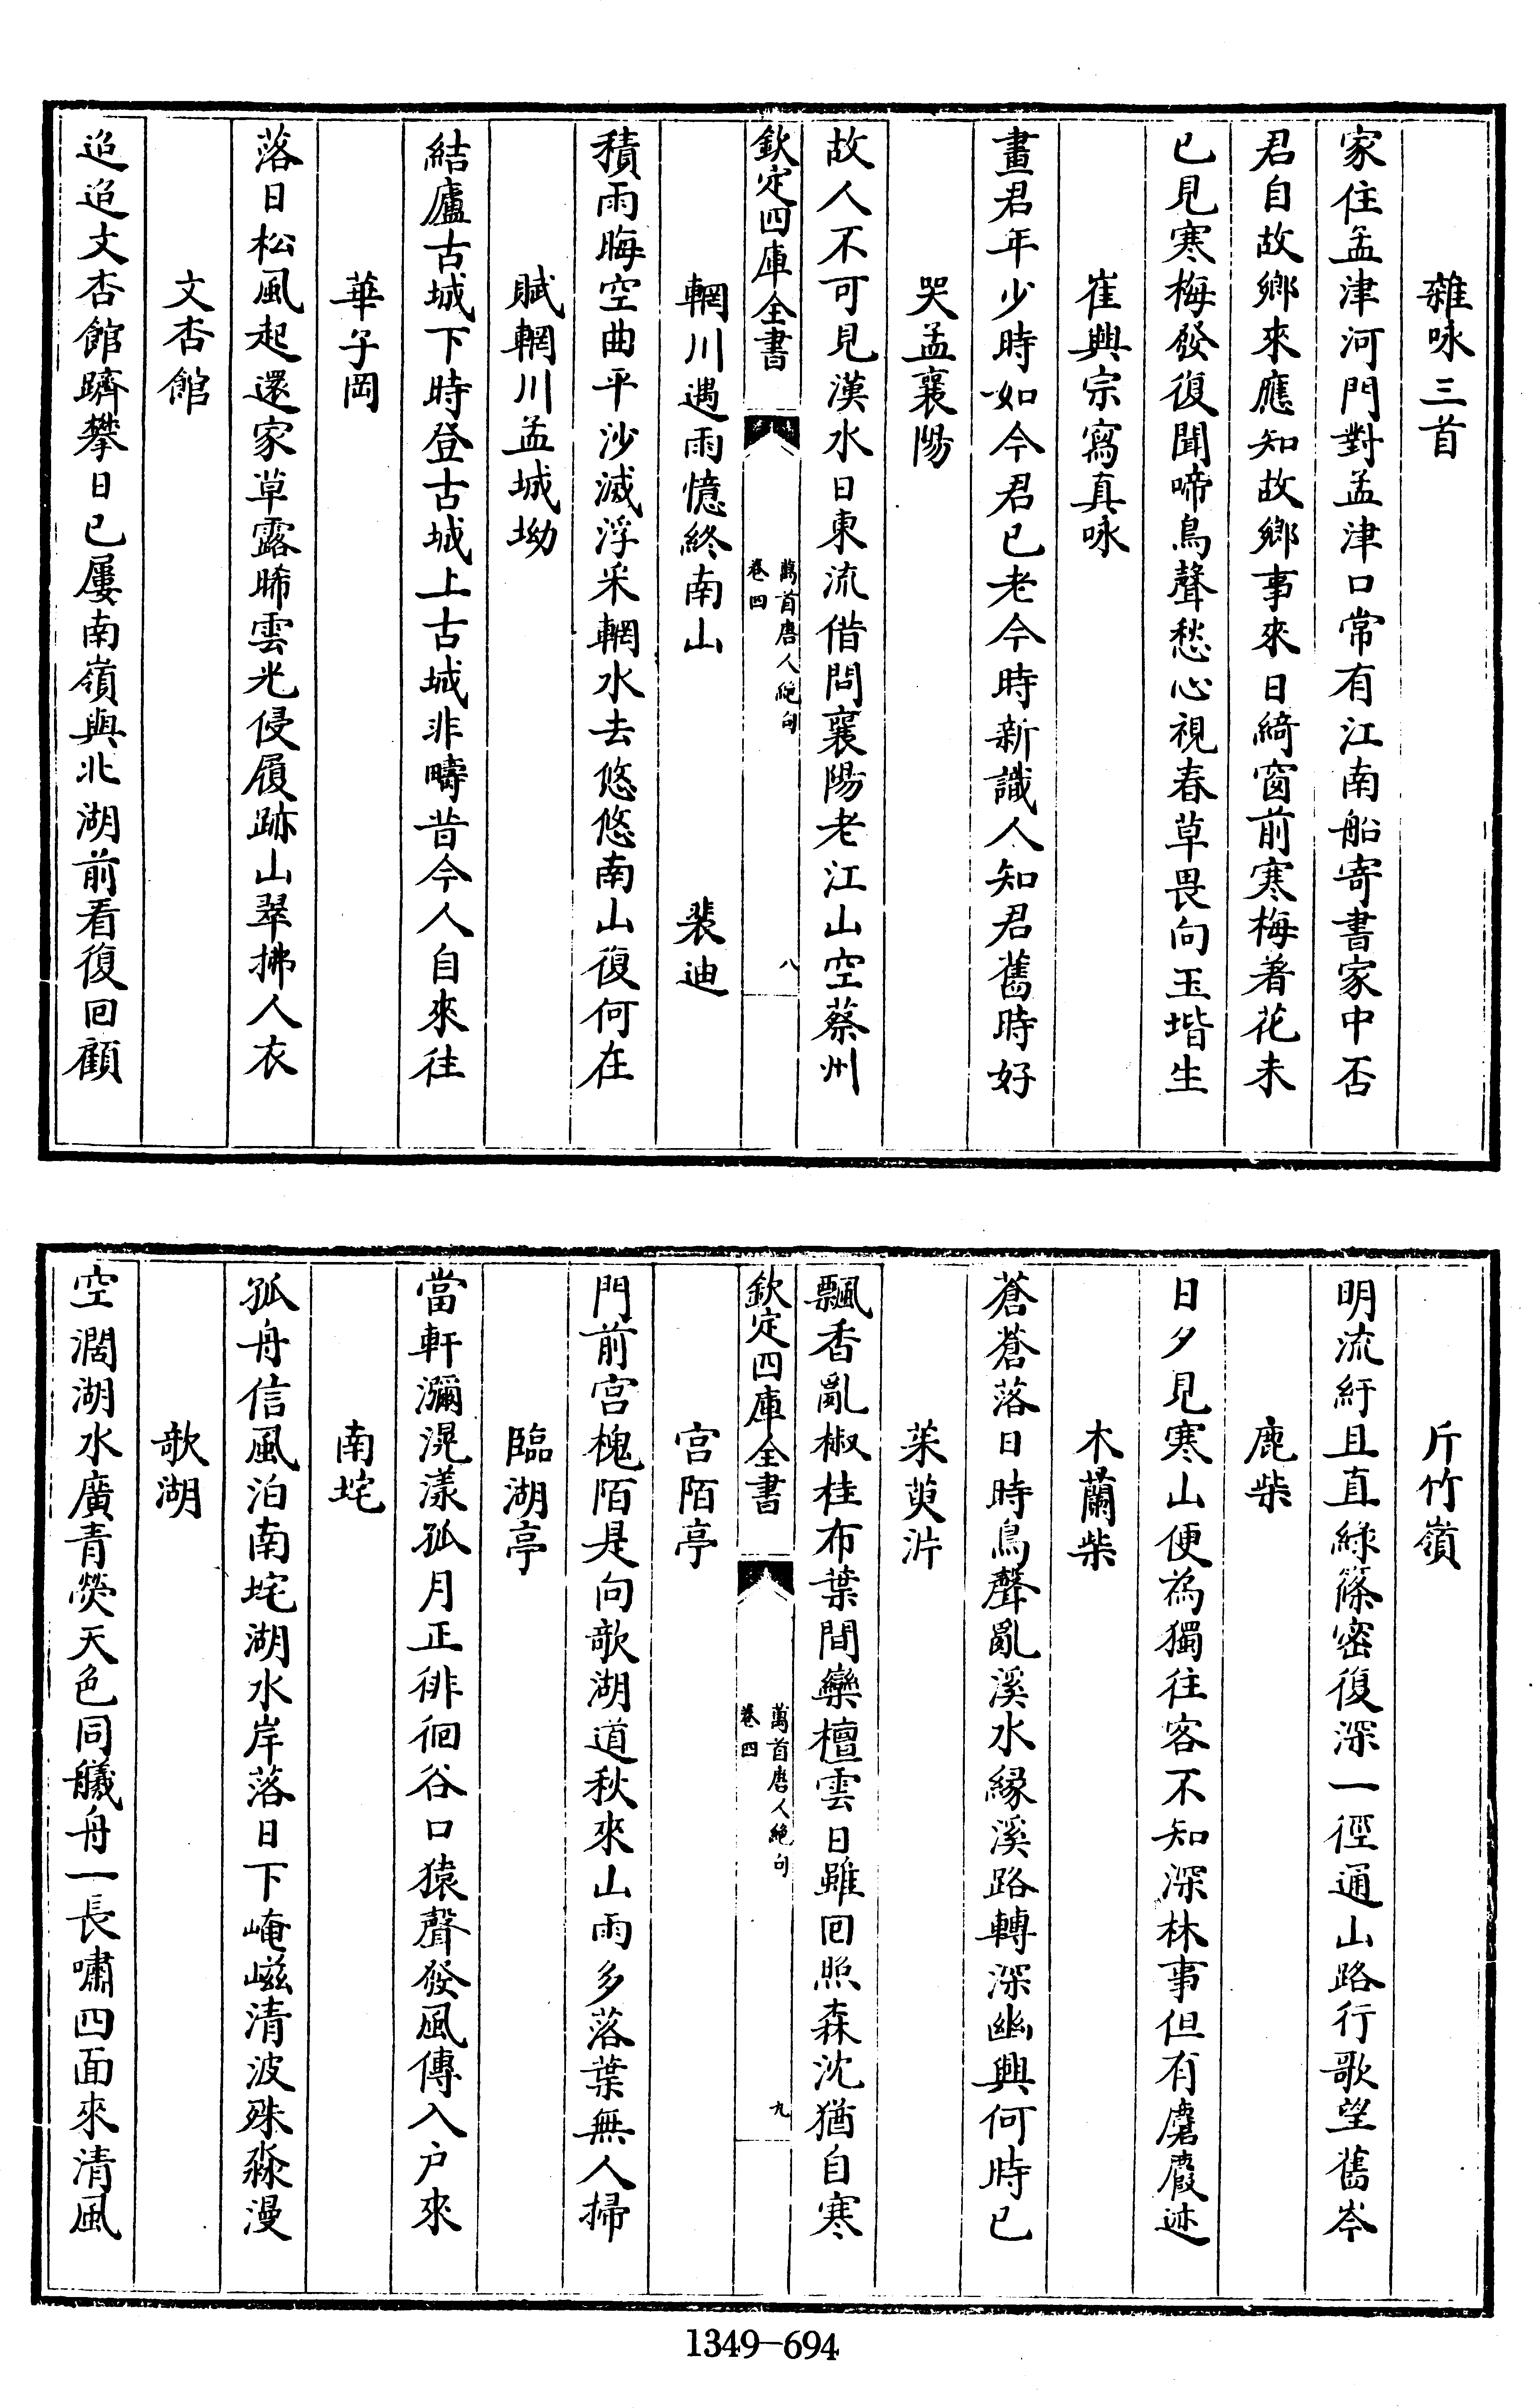 雜咏三首
家住孟津河門對孟津口常有江南船寄書家中否
君自故鄉來應知故鄉事來日綺窗前寒梅著花未
已見寒梅發復聞啼鳥聲愁心視春草畏向玉堦生
崔興宗寫真咏
畫君年少時如今君已老今時新識人知君舊時好
哭孟襄陽
故人不可見漢水日東流借問襄陽老江山空蔡州
欽定四庫全書
萬首唐人絕句
卷四
八
輞川遇雨憶終南山 裴迪
積雨晦空曲平沙滅浮釆輞水去悠悠南山復何在
賦輞川孟城坳
結廬古城下時登古城上古城非疇昔今人自來往
華子岡
落日松風起還家草露晞雲光侵履跡山翠拂人衣
文杏館
迢迢文杏館躋攀日已屢南嶺與北湖前看復回顧
斤竹嶺
明流紆且直綠篠密復深一徑通山路行歌望舊岑
鹿柴
日夕見寒山便為獨往客不知深林事但有麏麚迹
木蘭柴
蒼蒼落日時鳥聲亂溪水緣溪路轉深幽興何時已
茱萸沜
飄香亂椒桂布葉間欒檀雲日雖回照森沈猶自寒
欽定四庫全書
萬首唐人絕句
卷四
九
宮陌亭
門前宮槐陌是向欹湖道秋來山雨多落葉無人掃
臨湖亭
當軒瀰滉漾孤月正徘徊谷口猿聲發風傳入户來
南垞
孤舟信風泊南垞湖水岸落日下崦嵫清波殊淼漫
欹湖
空濶湖水廣青熒天色同艤舟一長嘯四面來清風
1349-694